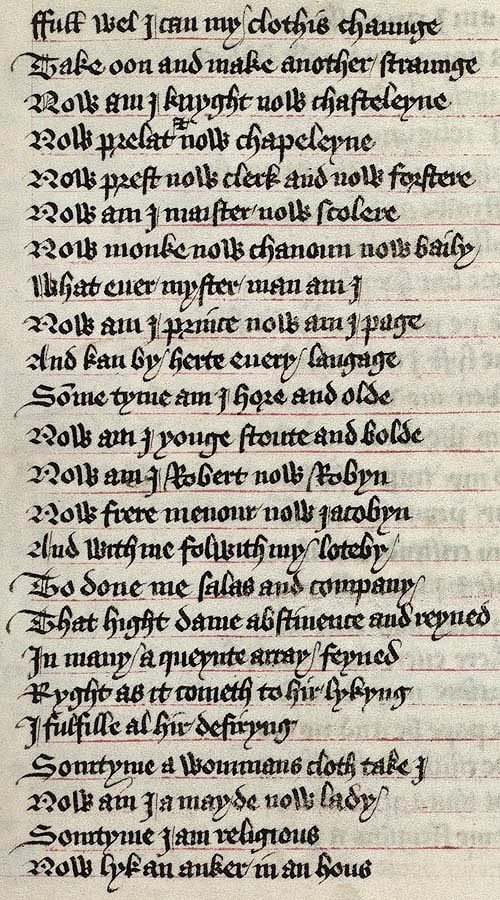 Ffull wel I can my clothis chaunge
Take oon and make another straunge
Now am I knyght now chasteleyne
Now prelat & now chapeleyne
Now prest now clerk and now forstere
Now am I maister now scolere
Now monke now chanoun now baily
What euer myster man am I
Now am I prince now am I page
And kan by herte euery langage
Som̄e tyme am I hore and olde
Now am I yonge stoute and bolde
Now am I Robert now Robyn
Now frere menour now iacobyn
And with me folwith my loteby
To done me solas and company
That hight dame abstinence and reyned
In many a queynte array feyned
Ryght as it cometh to hir lykyng
I fulfille al hir desiryng
Somtyme a wommans cloth take I
Now am I a mayde now lady
Somtyme I am religious
Now lyk an anker in an hous